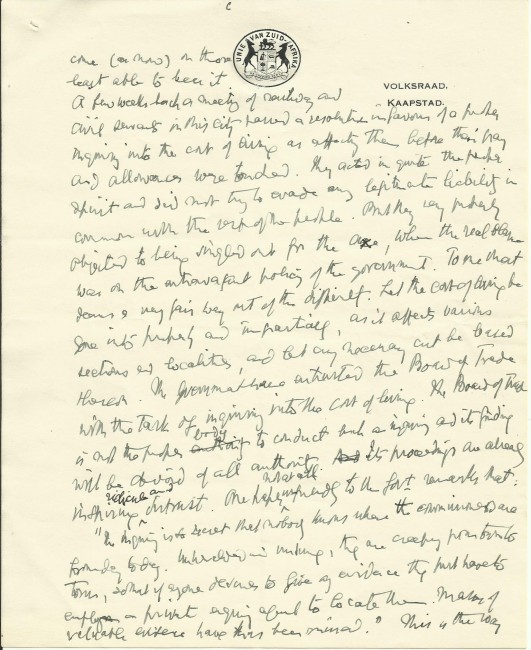 UNIE VAN ZUID-AFRIKA
VOLKSRAAD,
KAAPSTAD.
come (as now) on those
least able to bear it
A few weeks back a meeting of railway and
civil servants in this city passed a resolution in favour of a proper
inquiry into the cost of living as affecting them before their pay
and allowances were touched. They acted in quite the proper
spirit and did not try to evade any legitimate liability in
common with the rest of the people. But they very properly
objected to being singled out for the axe, when the real blame
was on the extravagant policy of the government. To me that
seems a very fair way out of the difficulty. Let the cost of living be
gone into properly and impartially, as it affects various
sections and localities, and let any necessary cut be based
thereon. The Government have entrusted the Board of Trade
with the task of inquiring into the cost of living. The Board of Trade
is not the proper body to conduct such a inquiry and its finding
will be devoid of all authority. Its proceedings are already
inspiring ridicule and distrust. One to the Govt remarks that:
"The inquiry is so secret that nobody at all knows where the commissioners are
from day to day. they are creeping from town to
town, so that if anyone desires to give evidence they must have to
employ a private agent to locate them. Many of
valuable evidence have thus been missed." This is the way